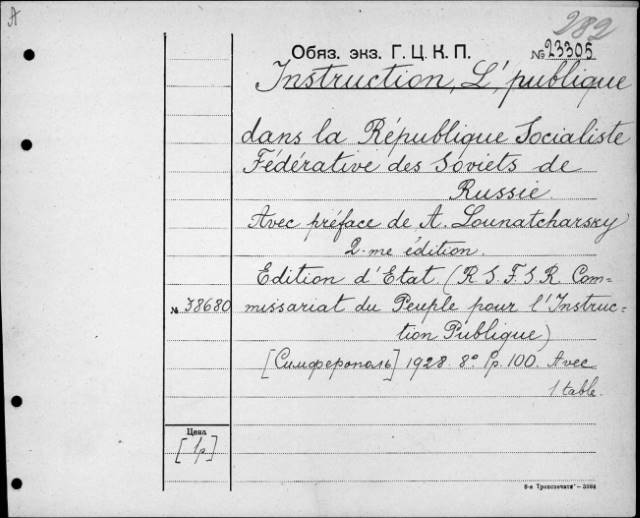 A
282
Обяз. экз. Г. Ц. К. П. № 23305
Instruction, L' publique
dans la République Socialiste
Fédérative des Soviets de
Russie.
Avec préface de A. Lounatcharsky
2-me édition.
Edition d'Etat (R.S.F.S.R. Com=
№ 38680 missariat du Peuple pour l'Instruc=
tion Publique)
[Симферополь] 1928. 8º. Pp. 100. Avec
1 table.
Цена
[1р]